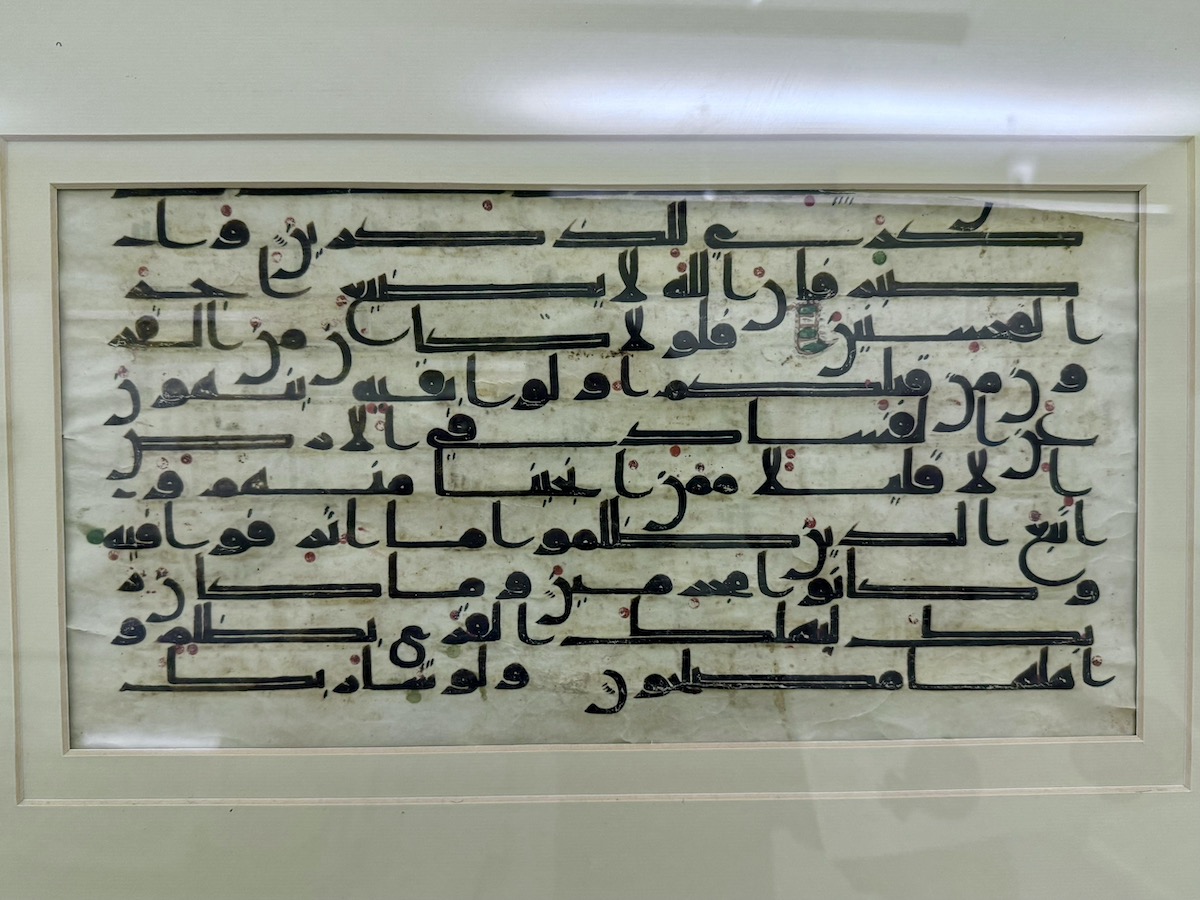 ذكرى للذكرين وا
صبر فان الله لا يضيع اجر
المحسنين فلولا كان من القر
ون من قبلكم اولوا بقيه ينهون
عن الفساد في الارض
الا قليلا ممن انجينا منهم و
اتبع الذين ظلموا ما اترفوا فيه
وكانوا مجرمين وما كان ر
بك ليهلك القرى بظلم و
اهلها مصلحون ولو شا ربك